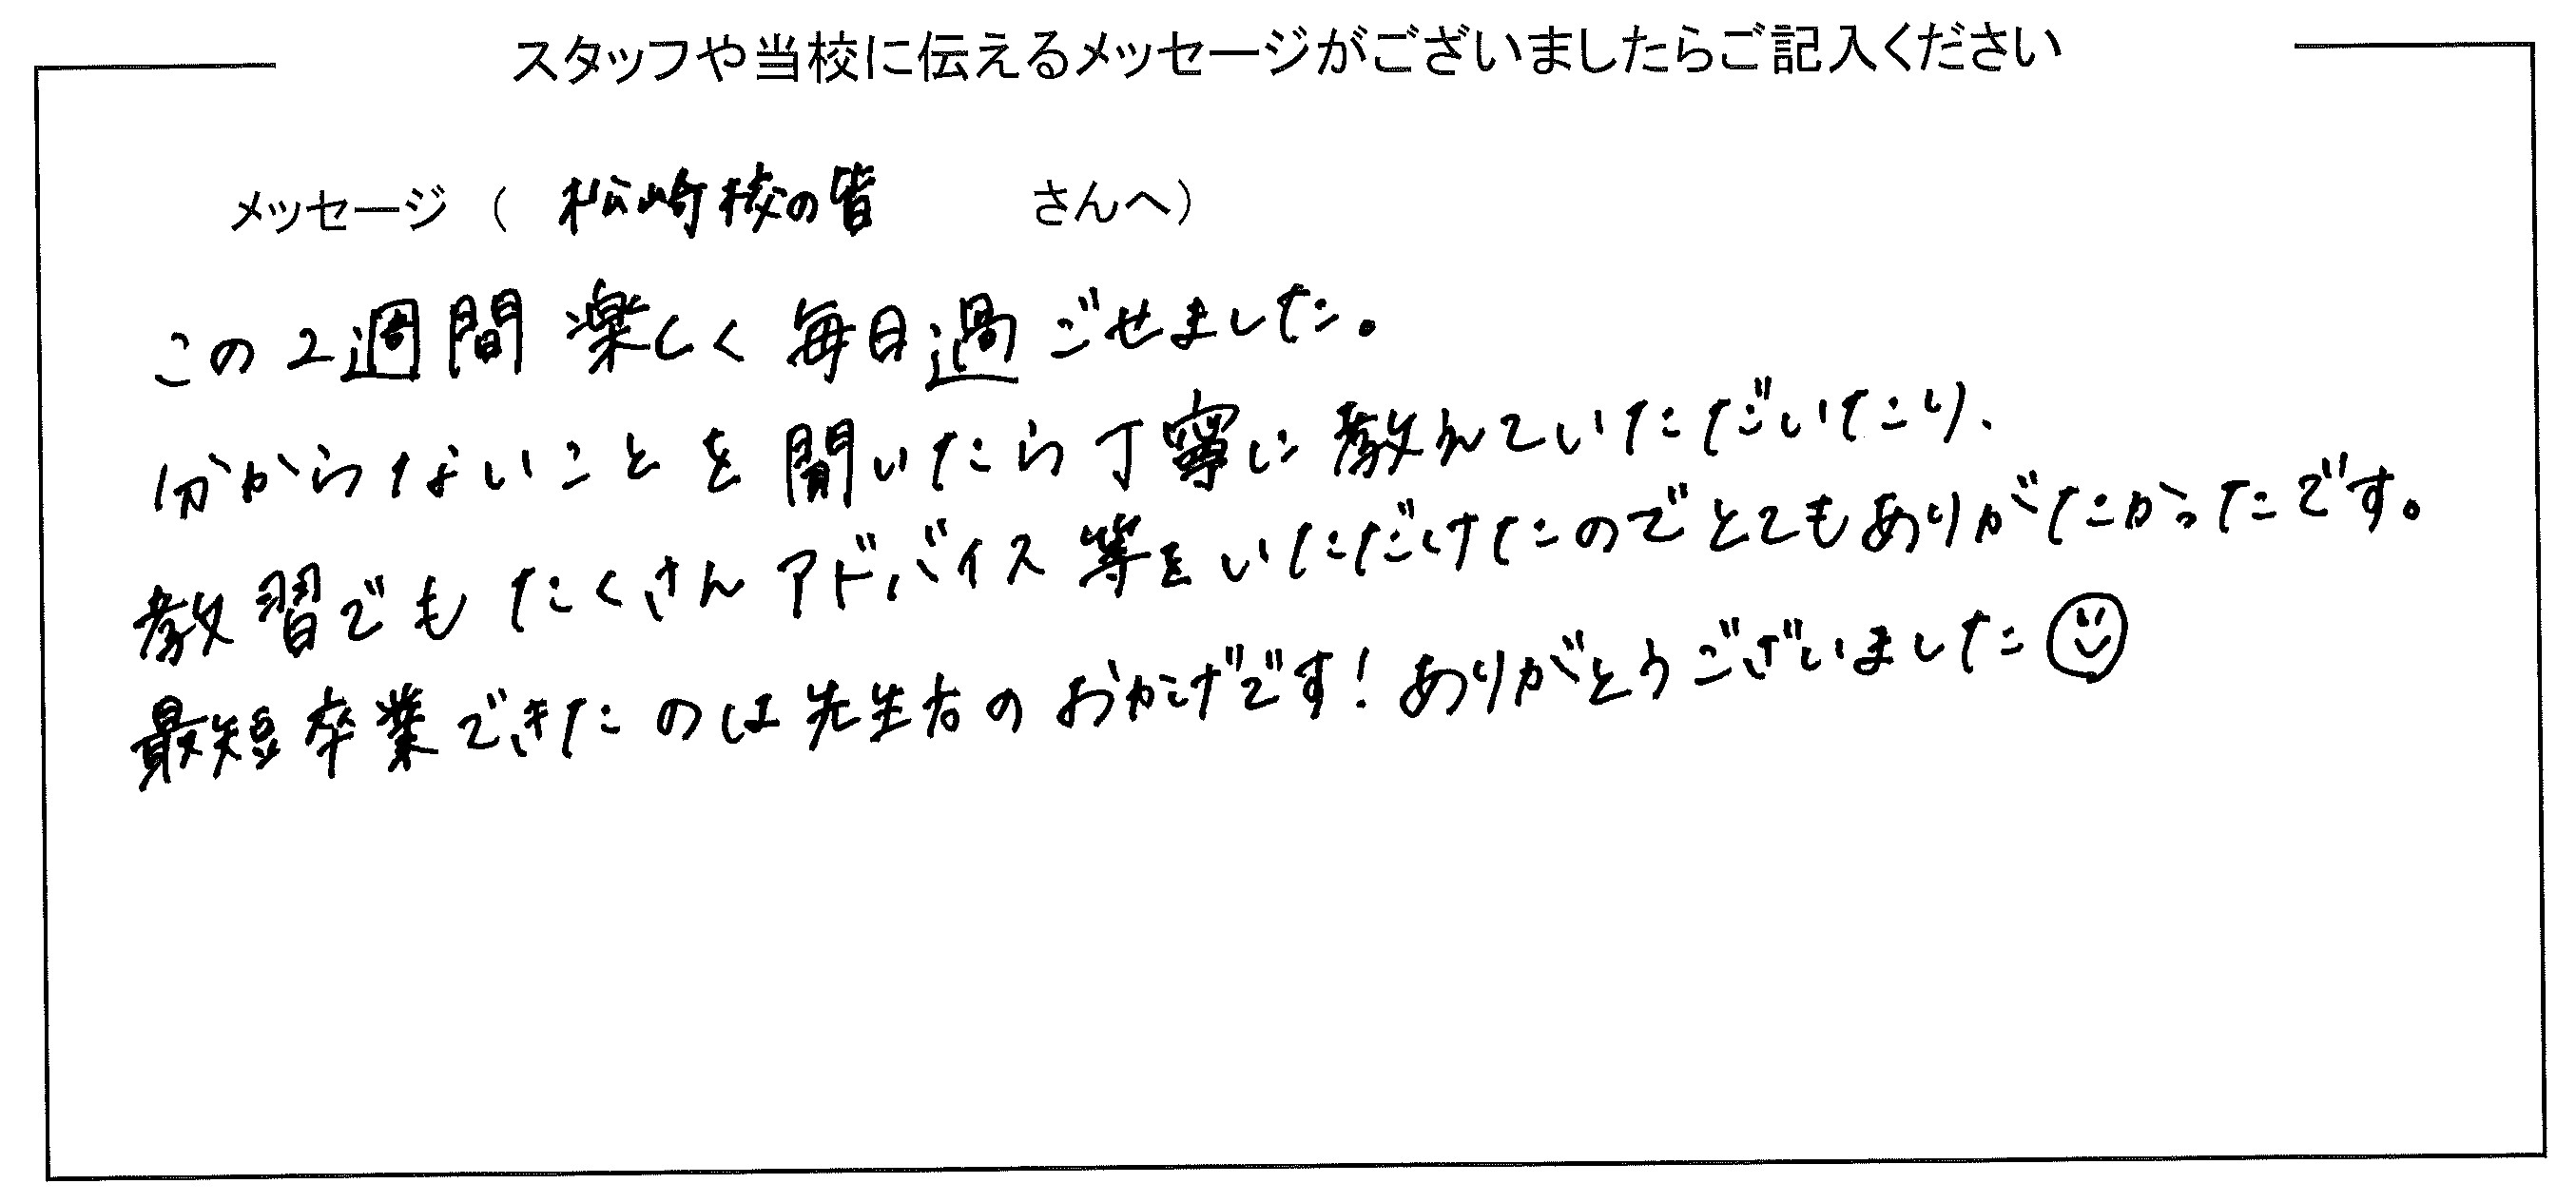 スタッフや当校に伝えるメッセージがございましたらご記入ください
メッセージ（ 松崎校の皆 さんへ）
この2週間 楽しく 毎日過ごせました。
分からないことを聞いたら丁寧に教えていただいたり、
教習でもたくさんアドバイス等をいただけたのでとてもありがたかったです。
最短卒業できたのは先生方のおかげです！ありがとうございました☺